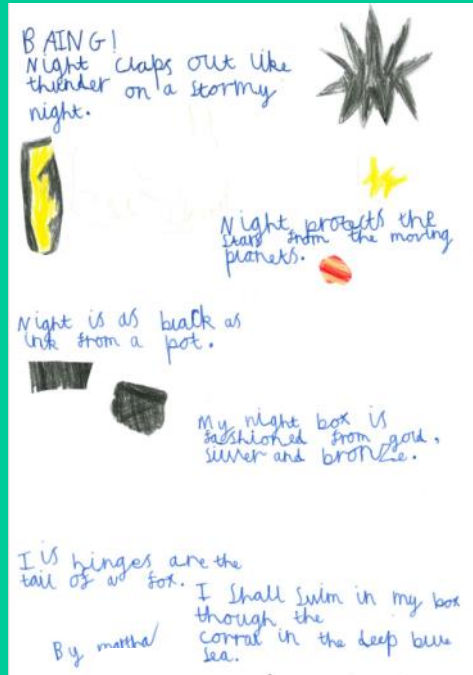 BAING!
Night claps out like
thunder on a stormy
night.
Night protects the
stars from the moving
planets.
Night is as black as
ink from a pot.
My night box is
fashioned from gold,
silver and bronze.
Iis hinges are the
tail of a fox.
I shall swim in my box
though the
corral in the deep blue
sea.
By martha